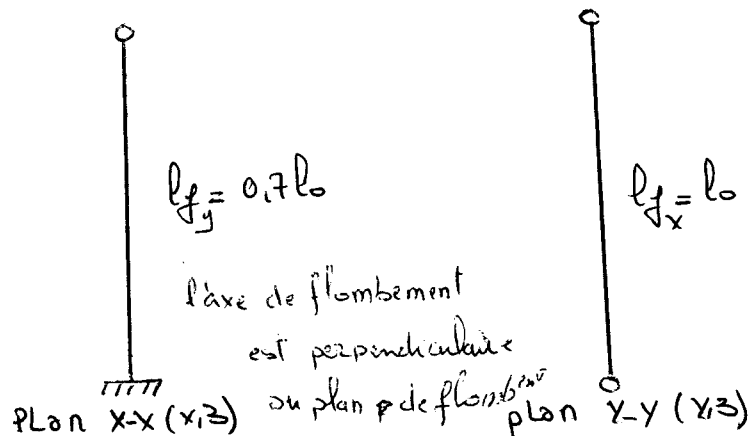 lfy = 0,7 l0
lfx = l0
l'axe de flombement
est perpendiculaire
au plan de flomb
PLan X-X (X,3)
plan Y-Y (Y,3)